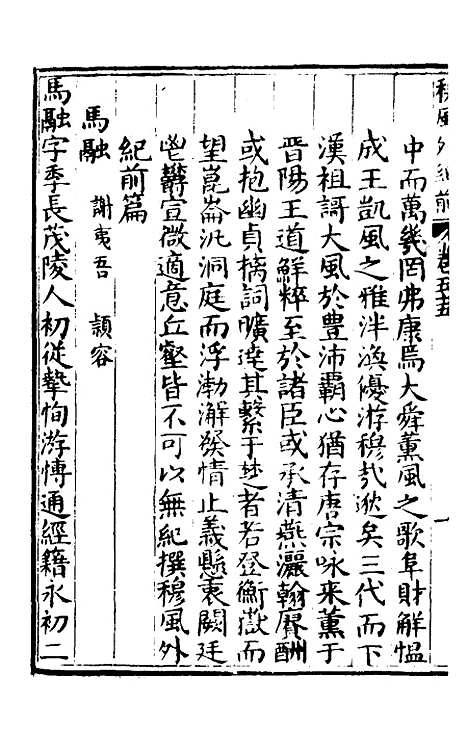 穆風外紀前 卷五五 一
中而萬幾罔弗康焉大舜薰風之歌阜財解慍
成王凱風之雅泮渙優游穆哉邈矣三代而下
漢祖謌大風於豊沛霸心猶存唐宗咏来薫于
晋陽王道鮮粹至於諸臣或承清燕灑翰賡酬
或抱幽貞摛詞曠遠其繫于楚者若登衡嶽而
望崑崙汎洞庭而浮渤澥發情止義懸衷闕廷
鬯欝宣微適意丘壑皆不可以無紀撰穆風外
紀前篇
馬融 謝夷吾 頴容
馬融字季長茂陵人初従摯恂游愽通經籍永初二